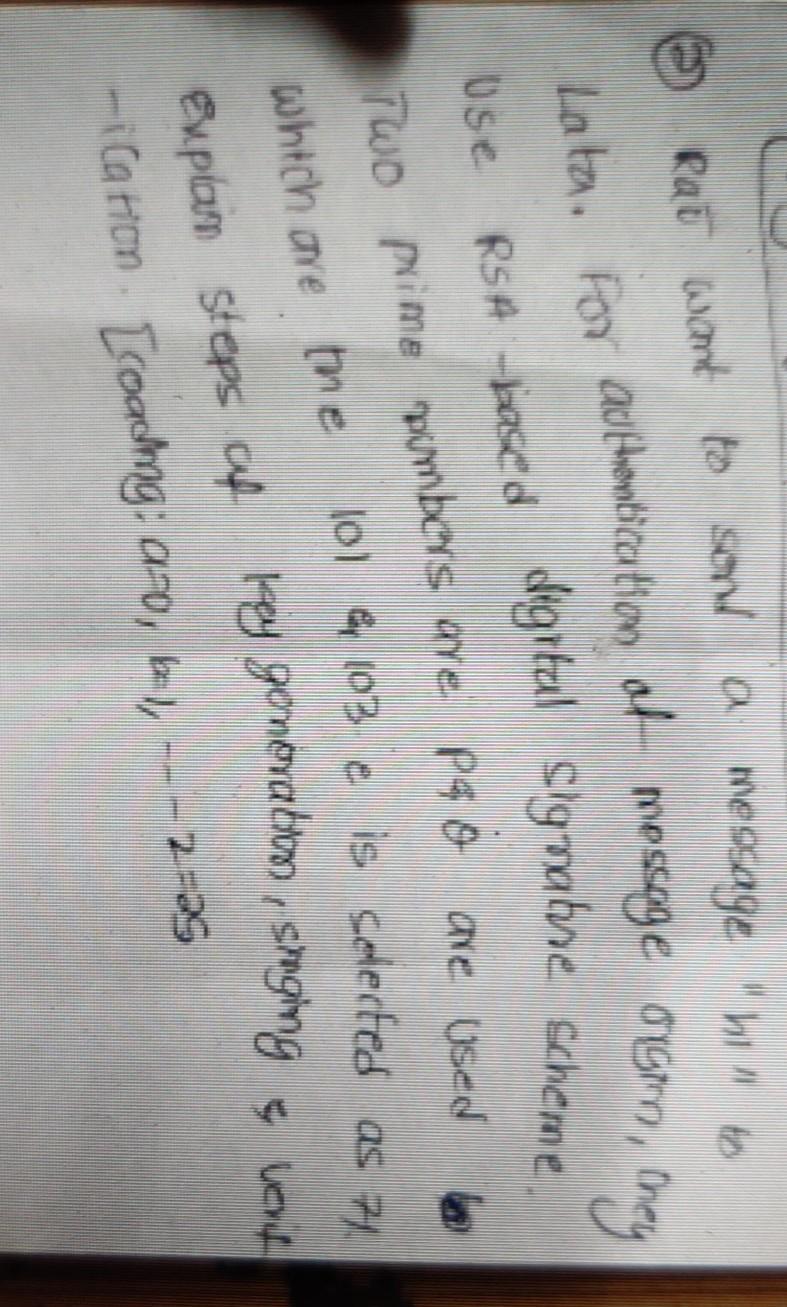 ② Rai want to send a message "hi" to
Lata. For authentication of message origin, they
use RSA-based digital signature scheme.
Two prime numbers are P & Q are used
which are the 101 & 103 e is selected as 71.
explain steps of key generation, singing & verif
-ication. [coading: a=0, b=1, --- z=25